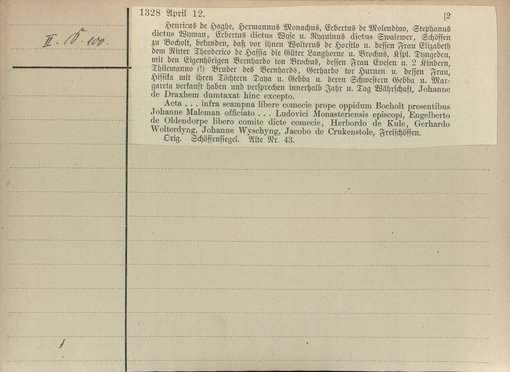 II. 
1328 April 12. [2
Henricus de Haghe, Hermannus Monachus, Ecbertus de Molendino, Stephanus
dictus Wyman, Ecbertus dictus Wyse u. Ryquinus dictus Swalewer, Schöffen
zu Bocholt, bekunden, daß vor ihnen Wolterus de Horstlo u. dessen Frau Elizabeth
dem Ritter Theoderico de Hassia die Güter Langhorne u. Brochus, Kspl. Dyngeden,
mit den Eigenhörigen Bernhardo ton Brochus, dessen Frau Evesen u. 2 Kindern,
Thilemanno (!) Bruder des Bernhards, Gerhardo tor Hurnen u. dessen Frau,
Hilsika mit ihren Töchtern Daya u. Gebba u. deren Schwestern Gebba u. Mar-
gareta verkauft haben und versprechen innerhalb Jahr u. Tag Währschaft, Johanne
de Draxhem dumtaxat hinc excepto.
Acta . . . infra scampna libere comecie prope oppidum Bocholt presentibus
Johanne Maleman officiato . . . Ludovici Monasteriensis episcopi, Engelberto
de Oldendorpe libero comite dicte comecie, Herbordo de Kule, Gerhardo
Wolterdyng, Johanne Wyschyng, Jacobo de Crukenstole, Freischöffen.
Orig. Schöffensiegel. Alte Nr. 43.